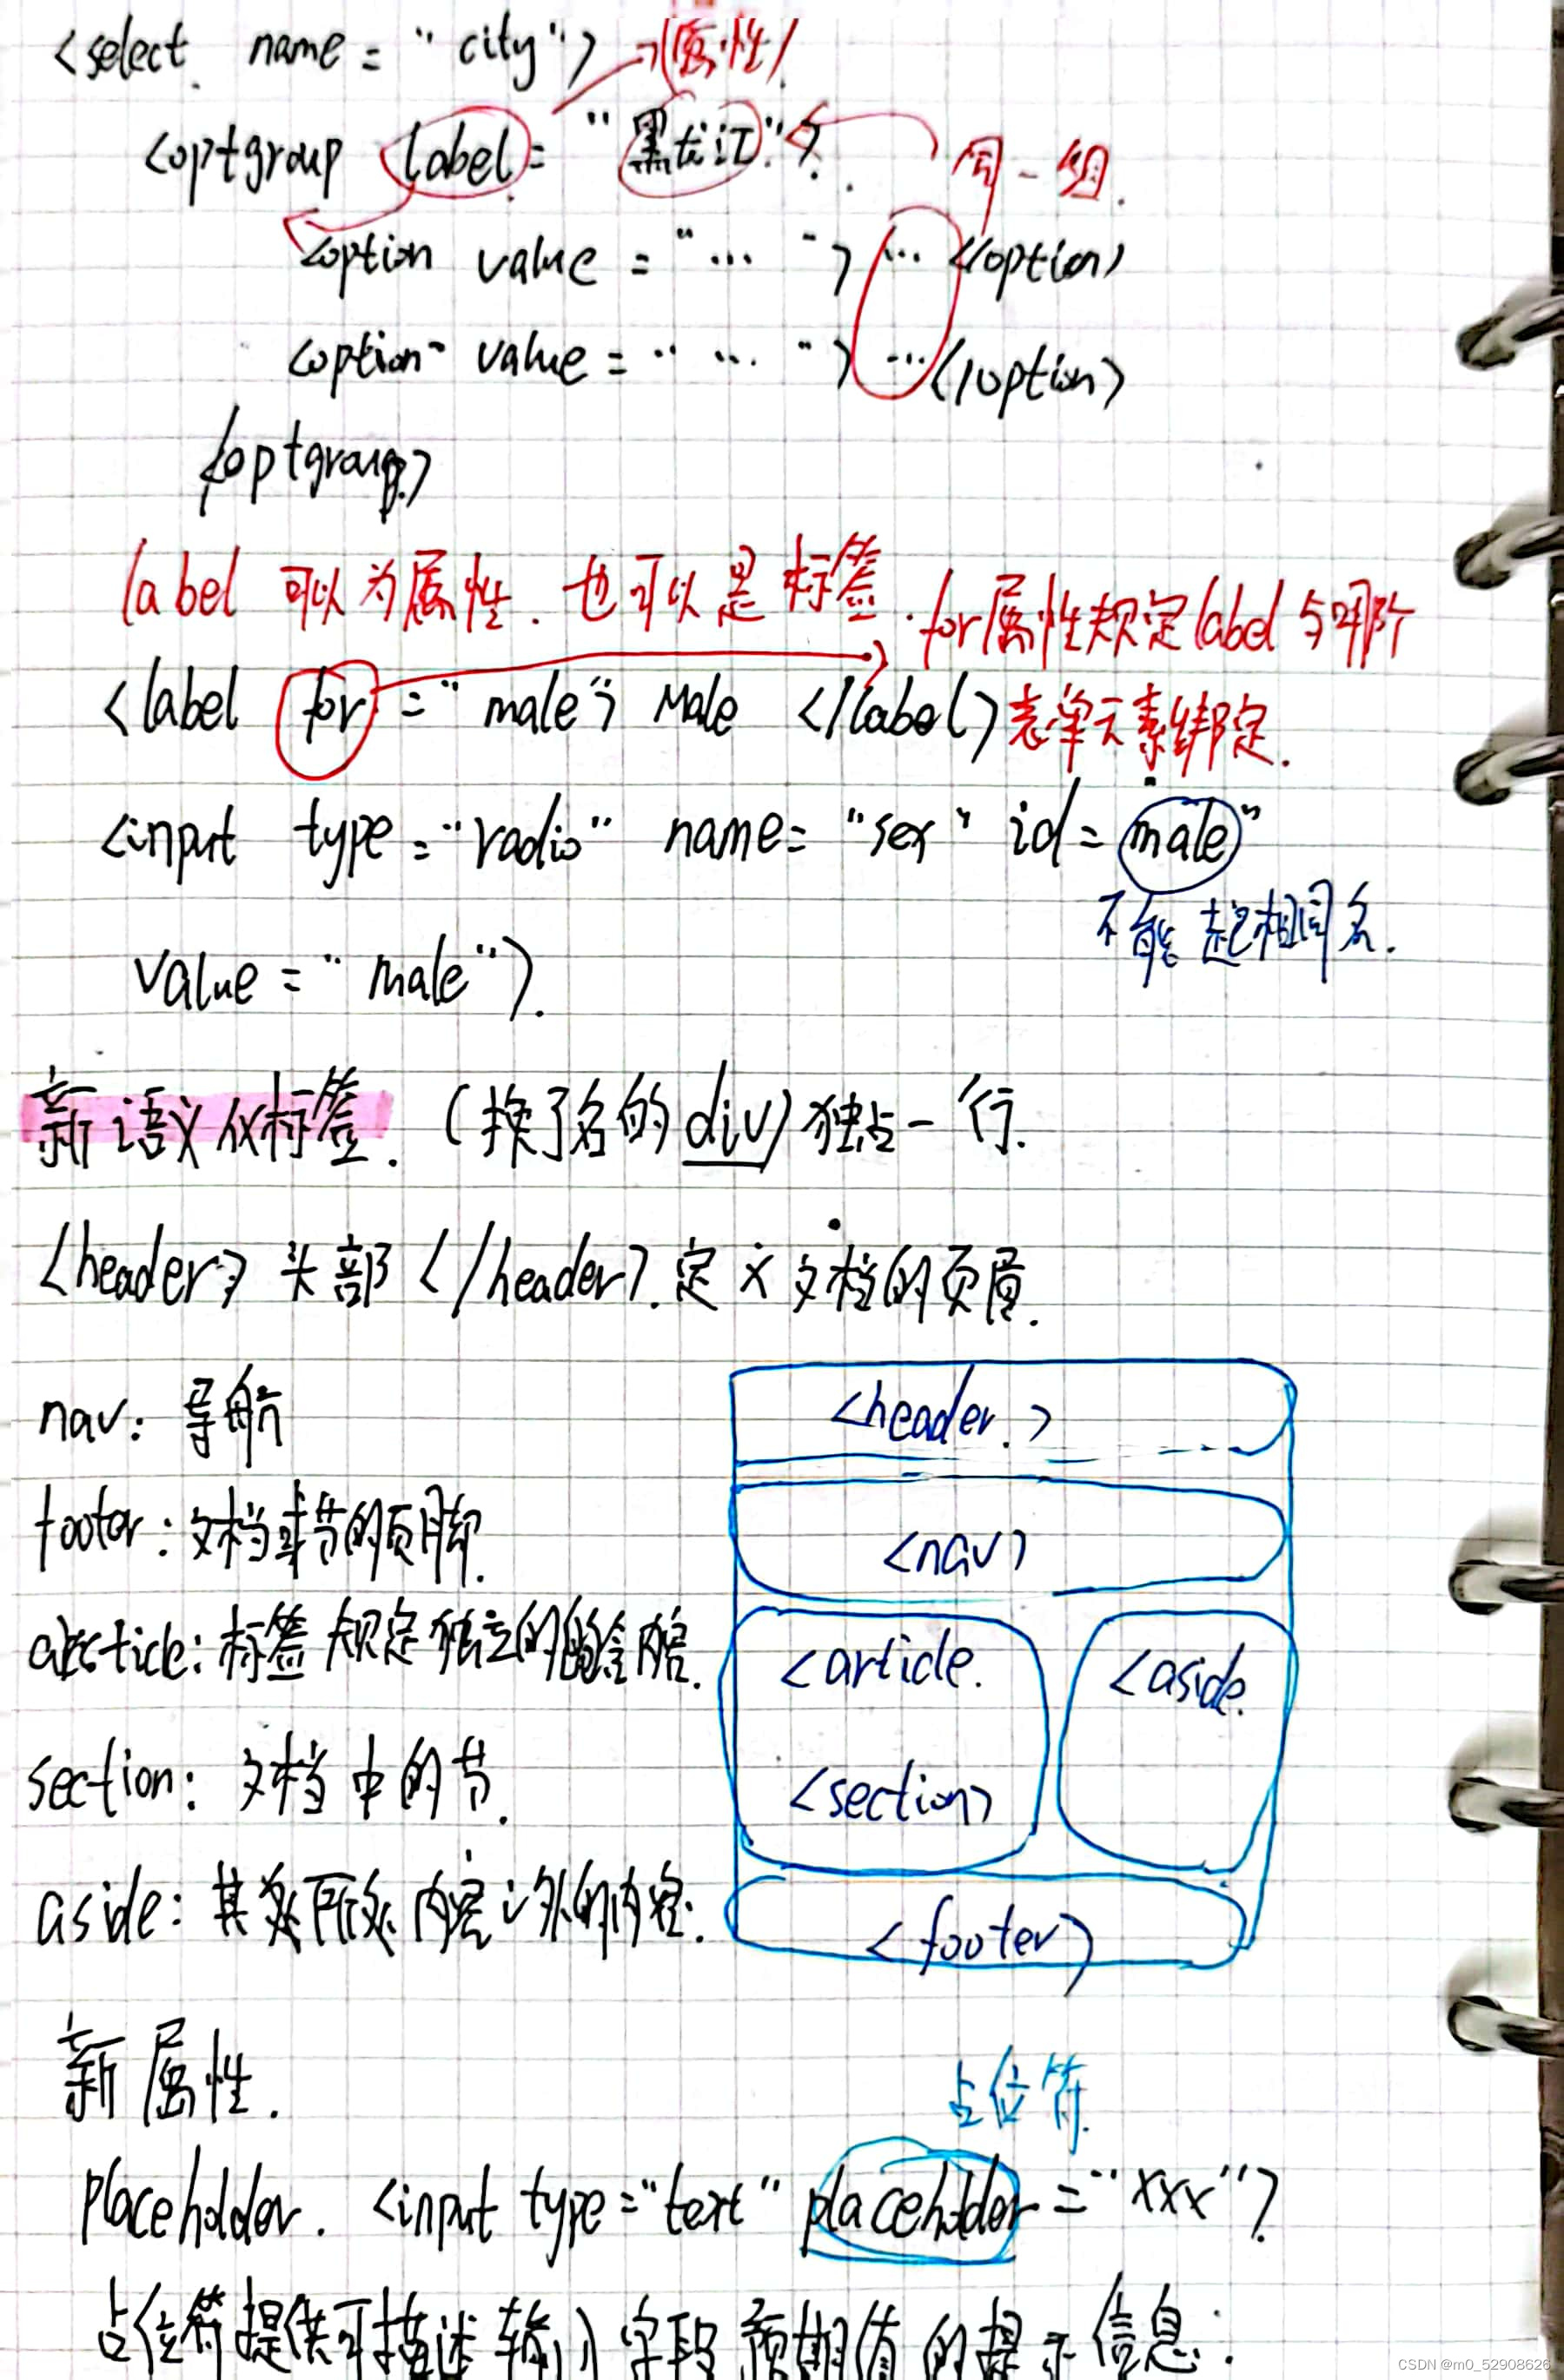 <select name = "city"> →(属性)
<optgroup label = "黑龙江">. 同一组.
<option value = "... "> ... </option>
<option value = "... "> ... </option>
</optgroup>
label 可以为属性. 也可以是标签. for属性规定label与哪个
<label for = "male"> Male </label> 表单元素绑定.
<input type = "radio" name = "sex" id = male"
不能起相同名.
value = "male">.
新语义化标签. (换了名的div) 独占一行.
<header> 头部 </header>. 定义文档的页眉.
nav: 导航
footer: 文档或节的页脚.
article: 标签规定独立的 内容.
section: 文档中的节.
aside: 其所处内容之外的内容.
<header.>
<nav>
<article. <aside.
<section>
<footer>
新属性.
占位符
placeholder. <input type = "text" placeholder = "xxx">
占位符提供可描述输入字段预期值的提示信息:
CSDN @m0_52908626